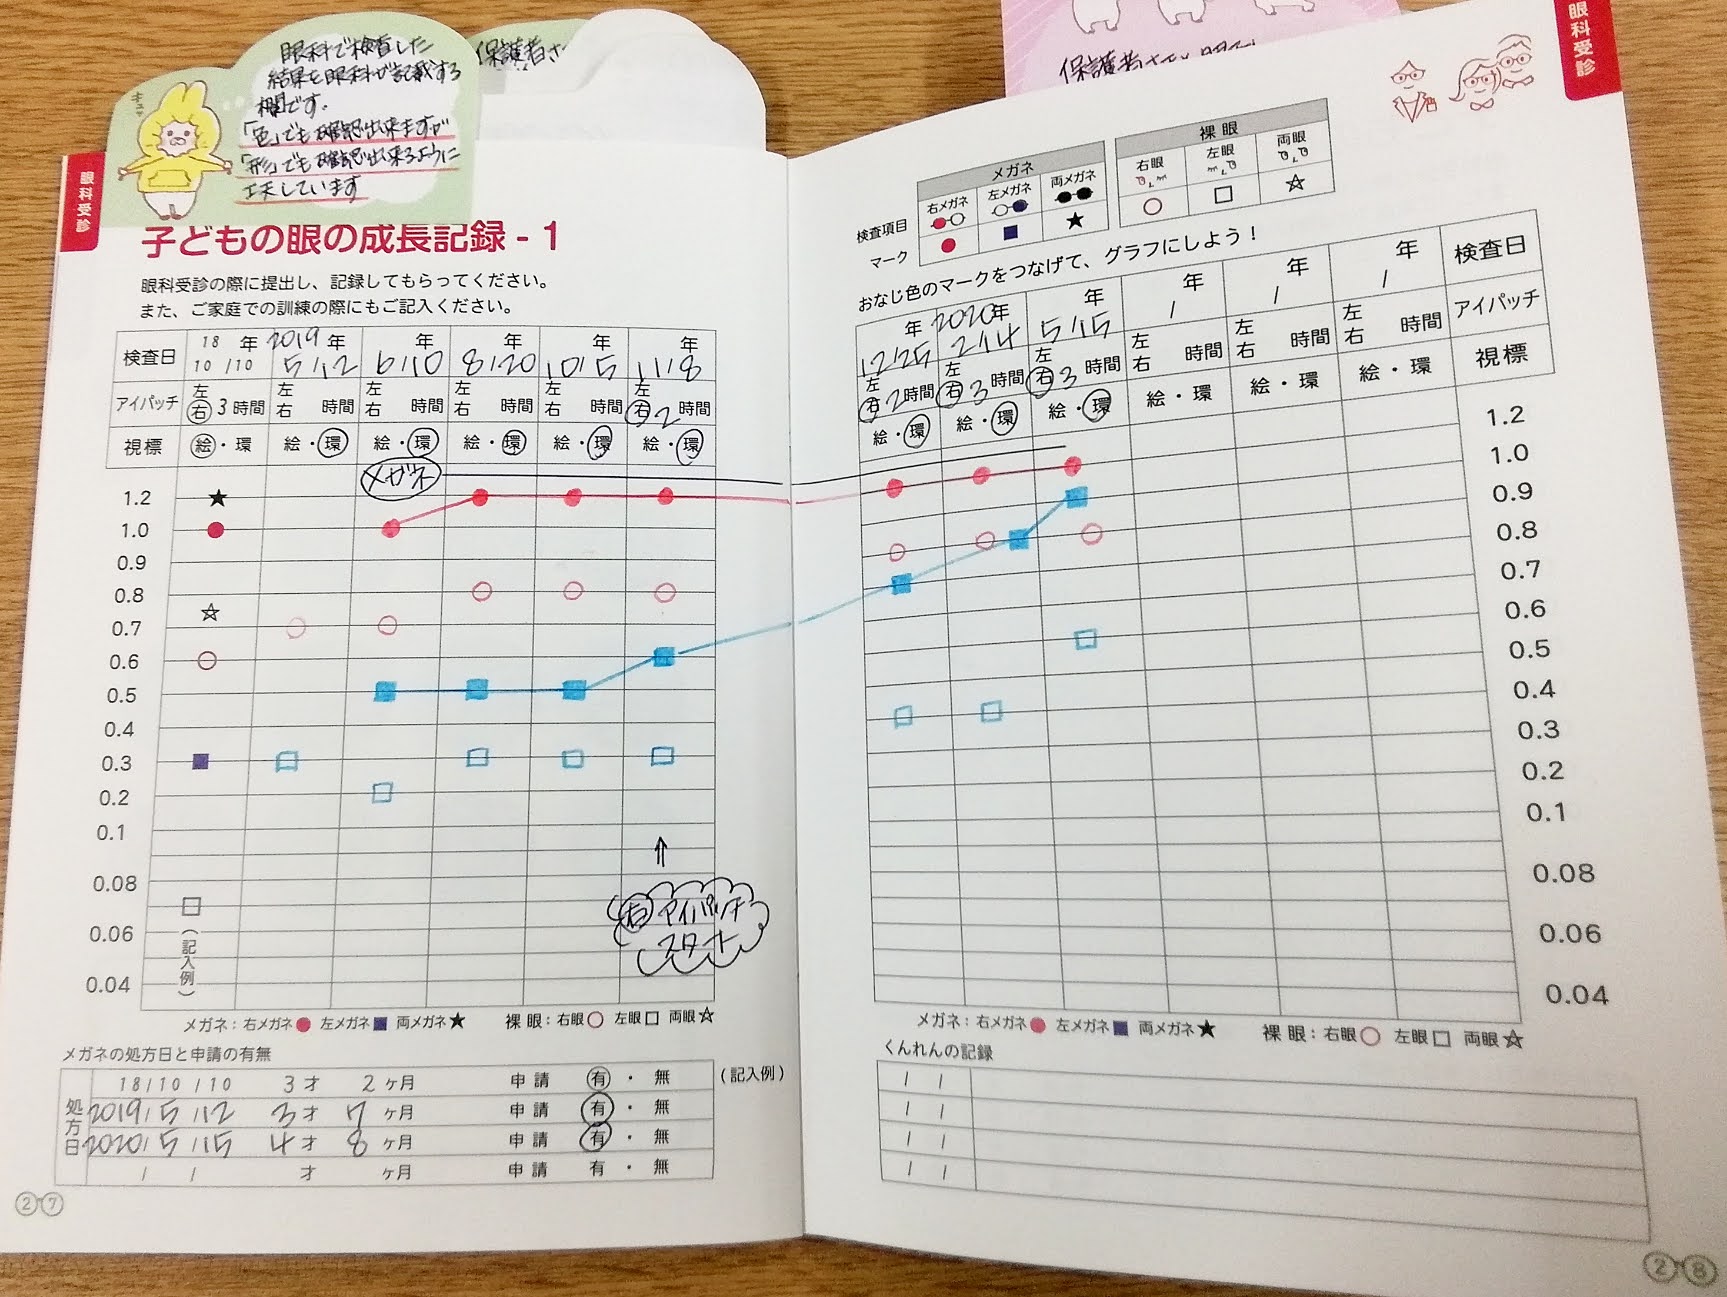 眼科で検査した
結果を眼科が記載する
欄です。
「色」でも確認出来ますが
「形」でも確認出来るように
工夫しています
保護者さ
保護者さ
眼科受診
眼科受診
子どもの眼の成長記録 - 1
眼科受診の際に提出し、記録してもらってください。
また、ご家庭での訓練の際にもご記入ください。
検査日 18年 10/10 2019年 5/12 年 6/10 年 8/20 年 10/5 年 11/8
アイパッチ 左右 3時間 左右 時間 左右 時間 左右 時間 左右 時間 左右 2時間
視標 絵・環 絵・環 絵・環 絵・環 絵・環 絵・環
メガネ
1.2
1.0
0.9
0.8
0.7
0.6
0.5
0.4
0.3
0.2
0.1
0.08
0.06
0.04
(記入例)
右アイパッチ
スタート
メガネ：右メガネ● 左メガネ■ 両メガネ★ 裸眼：右眼○ 左眼□ 両眼☆
メガネの処方日と申請の有無
処方日
18/10/10 3才 2ヶ月 申請 有・無 (記入例)
2019/5/12 3才 7ヶ月 申請 有・無
2020/5/15 4才 8ヶ月 申請 有・無
/ / 才 ヶ月 申請 有・無
27
メガネ 裸眼
検査項目 右メガネ 左メガネ 両メガネ 右眼 左眼 両眼
マーク ● ■ ★ ○ □ ☆
おなじ色のマークをつなげて、グラフにしよう！
年 12/25 2020年 2/14 年 5/15 年 / 年 / 年 / 検査日
左右 2時間 左右 3時間 左右 3時間 左右 時間 左右 時間 左右 時間 アイパッチ
絵・環 絵・環 絵・環 絵・環 絵・環 絵・環 視標
1.2
1.0
0.9
0.8
0.7
0.6
0.5
0.4
0.3
0.2
0.1
0.08
0.06
0.04
メガネ：右メガネ● 左メガネ■ 両メガネ★ 裸眼：右眼○ 左眼□ 両眼☆
くんれんの記録
/ /
/ /
/ /
/ /
28